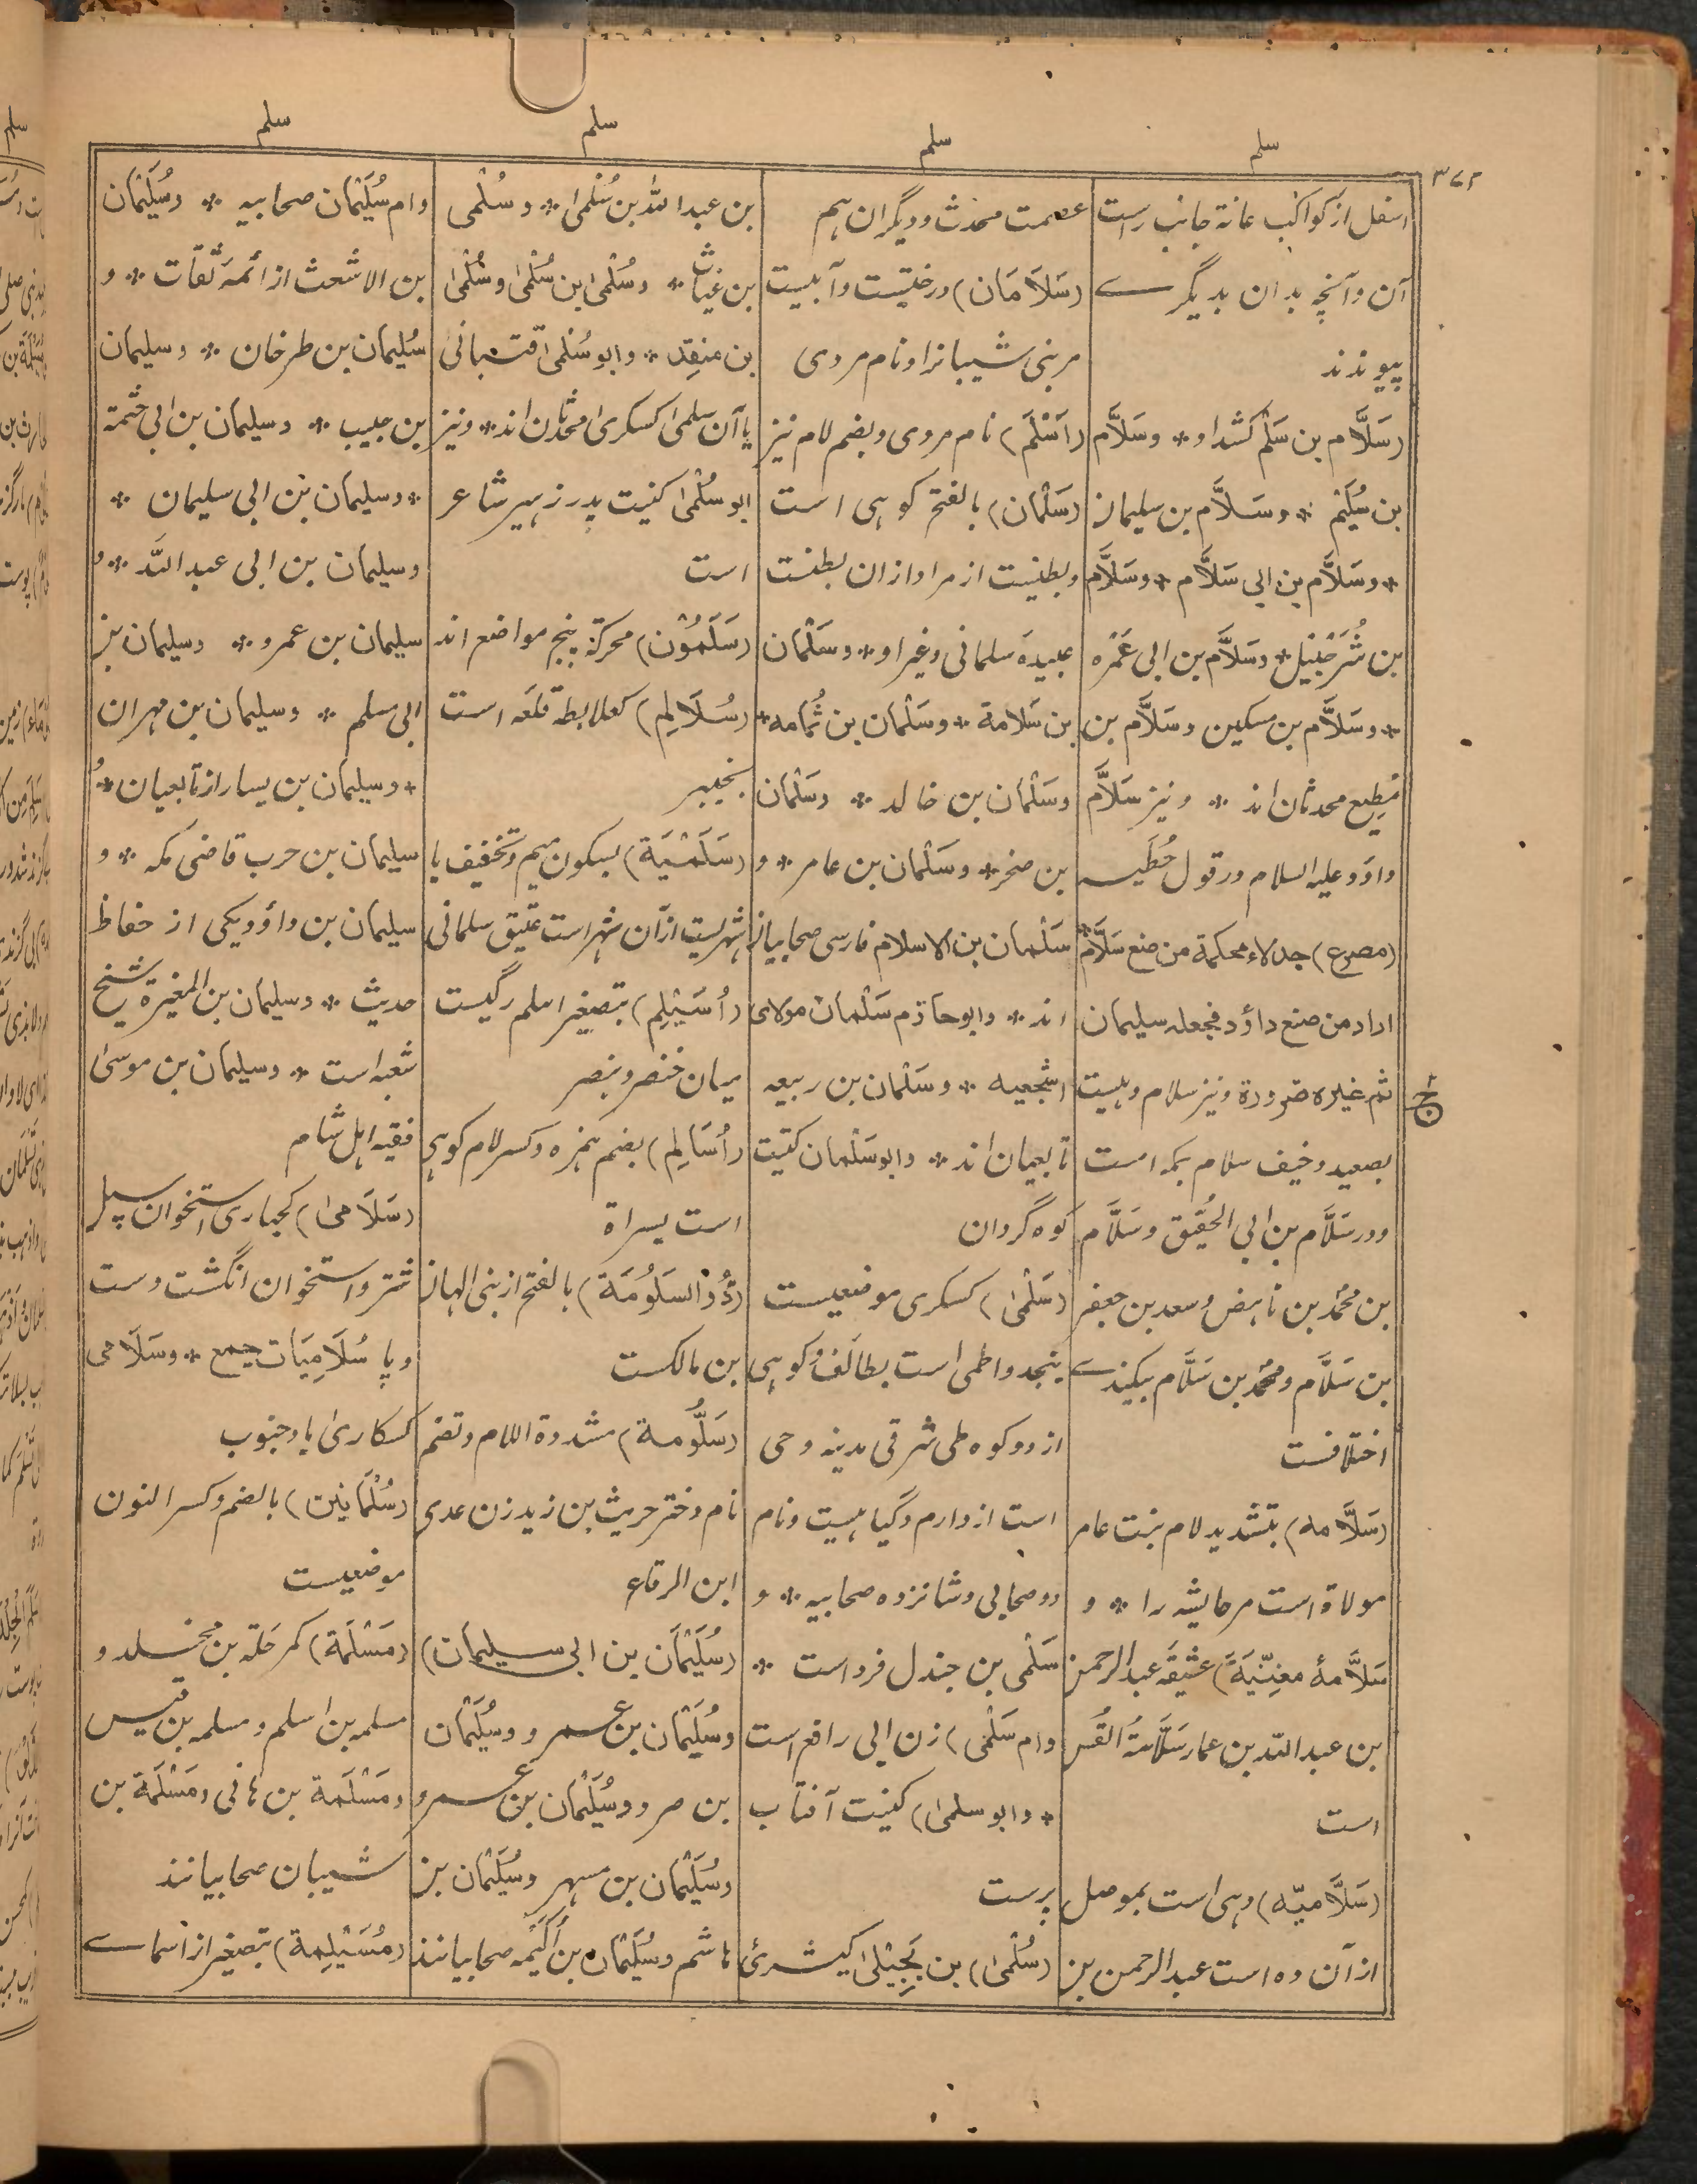 ۳۷۲
سلم
سلم
سلم
سلم
اسفل از کواکب عانة جانب راست
آن و آنچه بدان بدیگرے
پیوندند
(سَلَّام بن سَلْم کشداد * وسَلَّام
بن سُلَیْم * وسَلَّام بن سلیمان
* وسَلَّام بن ابی سَلَّام * وسَلَّام
بن شُرَحْبِیل * وسَلَّام بن ابی عَمْره
* وسَلَّام بن مسکین وسَلَّام بن
مُطِیع محدثان اند * ونیز سَلَّام
داؤد علیہ السلام در قول حُطَیـه
(مصرع) جدلاء محکمة من صنع سَلَّام *
اراد من صنع داؤد فجعله سلیمان
ثم غیره ضرورة ونیز سلام دهیست
بصعید وخیف سلام بمکه است
ودر سَلَّام بن ابی الحُقَیْق وسَلَّام
بن محمّد بن ناهض وسعد بن جعفر
بن سَلَّام ومحمّد بن سَلَّام بیکندے
اختلافست
(سَلَّامه) بتشدید لام بنت عامر
مولاة است مر عایشه را * و
سَلَّامۀ مغنِّیَة) عشیقه عبد الرحمن
بن عبد اللہ بن عمار سَلَّامَةُ القُس
است
(سَلَّامِیّه) دهی است بموصل
از آن ده است عبد الرحمن بن
عصمت محدث و دیگران هم
(سَلَامَان) درختیست وآبیست
مر بنی شیبانرا ونام مردی
(اَسْلَم) نام مردی وبضم لام نیز
(سَلْمَان) بالفتح کوهی است
وبطنیست از مراد ازان بطنست
عبیدۀ سلمانی وغیر او * وسَلْمَان
بن سَلامة * وسَلْمَان بن ثُمامه *
وسَلْمَان بن خالد * وسَلْمَان
بن صخر * وسَلْمَان بن عامر * و
سَلْمان بن الاسلام فارسی صحابیان
اند * وابو حازم سَلْمان مولای
اشجعیه * وسَلْمَان بن ربیعه
تابعیان اند * وابو سَلْمان کنیت
کوه گردان
(سَلْمیٰ) کسکری موضعیست
بنجد واطمی است بطائف وکوهی
از دو کوه طی شرقی مدینه وحی
است از دارم وگیاهیست ونام
دو صحابی وشانزده صحابیه * و
سَلْمی بن جندل فرد است *
وام سَلْمی) زن ابی رافع است
* وابو سلمیٰ) کنیت آفتاب
پرست
(سُلْمیٰ) بن
بن عبد اللہ بن سُلْمیٰ * وسُلْمی
بن غیاث * وسُلْمیٰ بن سُلْمیٰ وسُلْمیٰ
بن منقِذ * وابو سُلْمیٰ قتبانی
یا آن سلمیٰ کسکری محدثان اند * ونیز
ابو سُلْمیٰ کنیت پدر زهیر شاعر
است
(سَلَمُوْن) محرکة پنج مواضع اند
(سُلَالِم) کعلابطه قلعه است
بخیبر
(سَلَمْیَة) بسکون میم وتخفیف یا
شهریست از آن شهر است عتیق سلمانی
(اُسَیْلِم) بتصغیر اسلم رگیست
میان خنصر وبنصر
(اُسَالِم) بضم همزه وکسر لام کوهی
است بسراة
(ذُو السَلُومَة) بالفتح از بنی الهان
بن مالکست
(سَلُّومة) مشددة اللام وتضم
نام دختر حریث بن زید زن عدی
ابن الرقاع
(سُلَیْمَان بن ابی سلیمان)
وسُلَیْمَان بن عمرو وسُلَیْمَان
بن صرد وسُلَیْمَان بن عمرو
وسُلَیْمَان بن مسهر وسُلَیْمَان بن
هاشم وسُلَیْمَان بن اُکَیْمه صحابیانند
وام سُلَیْمَان صحابیه * وسُلَیْمَان
بن الاشعث از ائمۂ ثقات * و
سُلیمان بن طرخان * وسلیمان
بن حبیب * وسلیمان بن ابی حثمة
* وسلیمان بن ابی سلیمان *
وسلیمان بن ابی عبد اللہ * و
سلیمان بن عمرو * وسلیمان بن
ابی مسلم * وسلیمان بن مهران
* وسلیمان بن یسار از تابعیان * و
سلیمان بن حرب قاضی مکه * و
سلیمان بن داؤد یکی از حفاظ
حدیث * وسلیمان بن المغیرة شیخ
شعبه است * وسلیمان بن موسیٰ
فقیه اهل شام
(سَلَامیٰ) کحباری استخوان سپل
شتر واستخوان انگشت دست
وپا سُلَامِیَات جمع * وسَلَامی
کسکاریٰ باد جنوب
(سُلْمَانِین) بالضم وکسر النون
موضعیست
(مَسْلَمَة) کمرحلة بن مخلد و
مسلمه بن اسلم ومسلمه بن قیس
ومَسْلَمة بن هانی ومَسْلَمَة بن
شیبان صحابیانند
(مُسَیْلِمة) بتصغیر از اسمائے